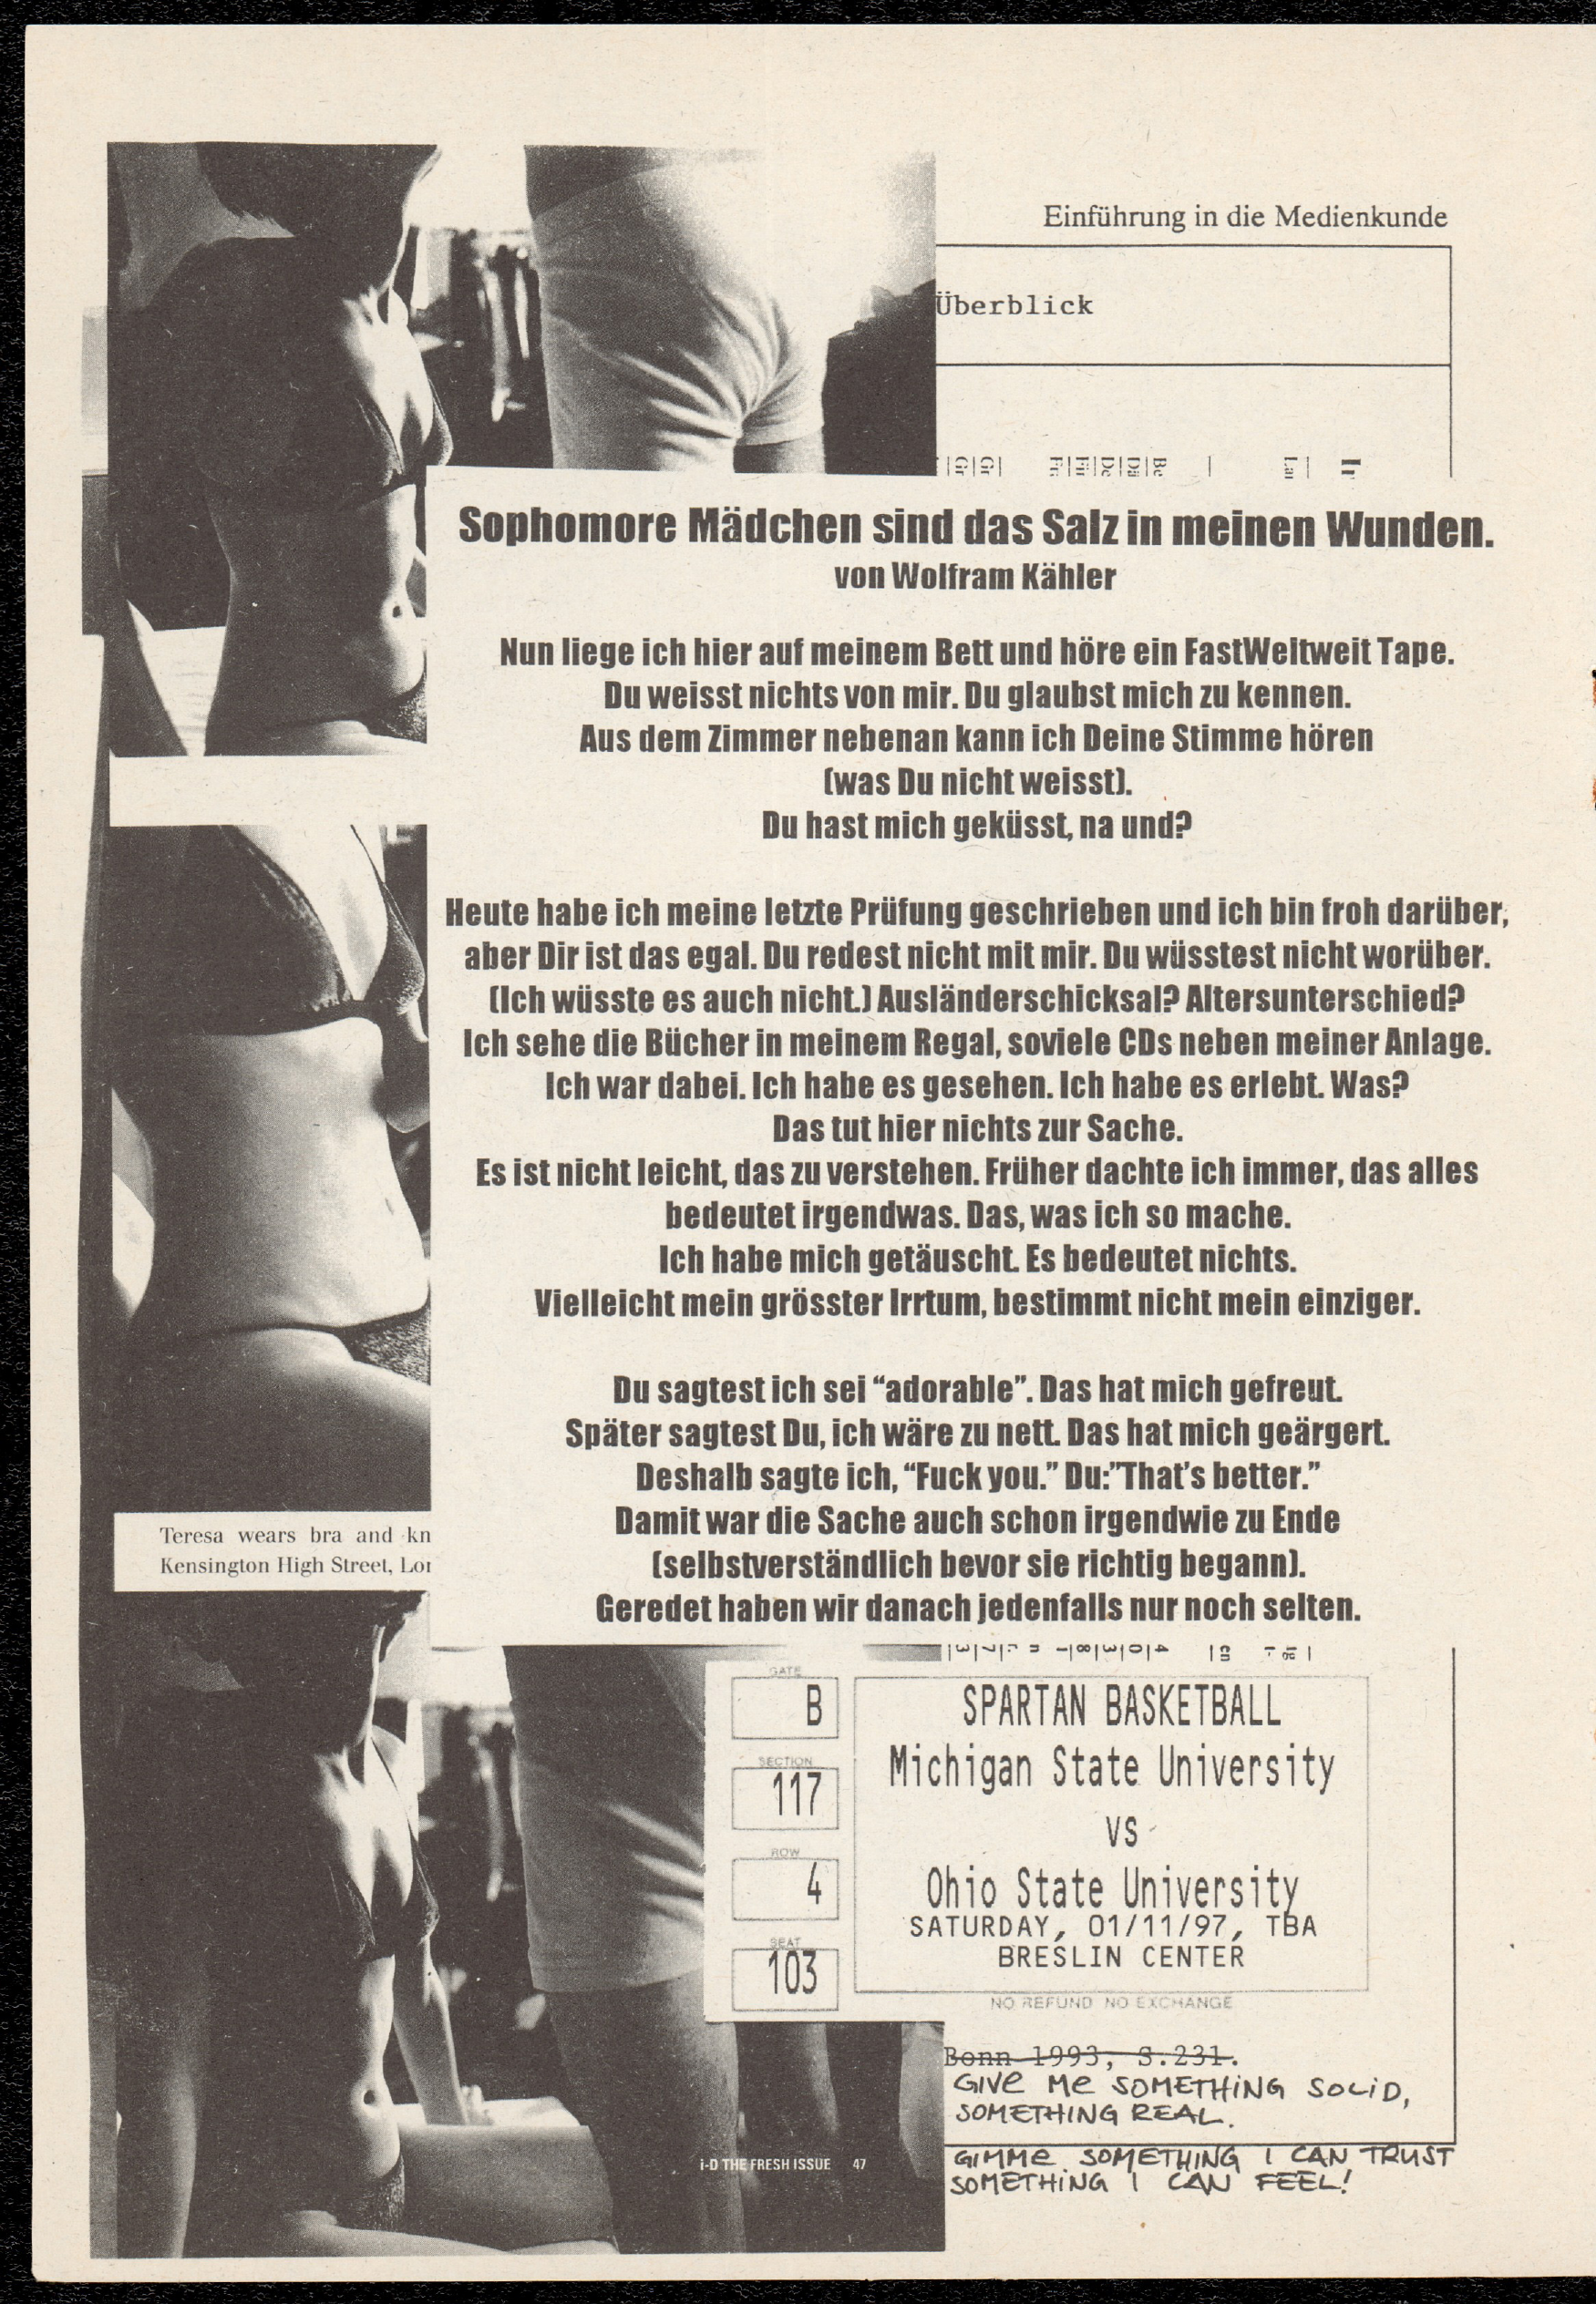 Einführung in die Medienkunde
Überblick
Sophomore Mädchen sind das Salz in meinen Wunden.
von Wolfram Kähler
Nun liege ich hier auf meinem Bett und höre ein FastWeltweit Tape.
Du weisst nichts von mir. Du glaubst mich zu kennen.
Aus dem Zimmer nebenan kann ich Deine Stimme hören
(was Du nicht weisst).
Du hast mich geküsst, na und?
Heute habe ich meine letzte Prüfung geschrieben und ich bin froh darüber,
aber Dir ist das egal. Du redest nicht mit mir. Du wüsstest nicht worüber.
(Ich wüsste es auch nicht.) Ausländerschicksal? Altersunterschied?
Ich sehe die Bücher in meinem Regal, soviele CDs neben meiner Anlage.
Ich war dabei. Ich habe es gesehen. Ich habe es erlebt. Was?
Das tut hier nichts zur Sache.
Es ist nicht leicht, das zu verstehen. Früher dachte ich immer, das alles
bedeutet irgendwas. Das, was ich so mache.
Ich habe mich getäuscht. Es bedeutet nichts.
Vielleicht mein grösster Irrtum, bestimmt nicht mein einziger.
Du sagtest ich sei “adorable”. Das hat mich gefreut.
Später sagtest Du, ich wäre zu nett. Das hat mich geärgert.
Deshalb sagte ich, “Fuck you.” Du:”That’s better.”
Damit war die Sache auch schon irgendwie zu Ende
(selbstverständlich bevor sie richtig begann).
Geredet haben wir danach jedenfalls nur noch selten.
Teresa wears bra and kn
Kensington High Street, Lon
GATE
B
SECTION
117
ROW
4
SEAT
103
SPARTAN BASKETBALL
Michigan State University
VS
Ohio State University
SATURDAY, 01/11/97, TBA
BRESLIN CENTER
NO REFUND NO EXCHANGE
Bonn 1993, S.231.
GIVE ME SOMETHING SOLID,
SOMETHING REAL.
GIMME SOMETHING I CAN TRUST
SOMETHING I CAN FEEL!
i-D THE FRESH ISSUE 47